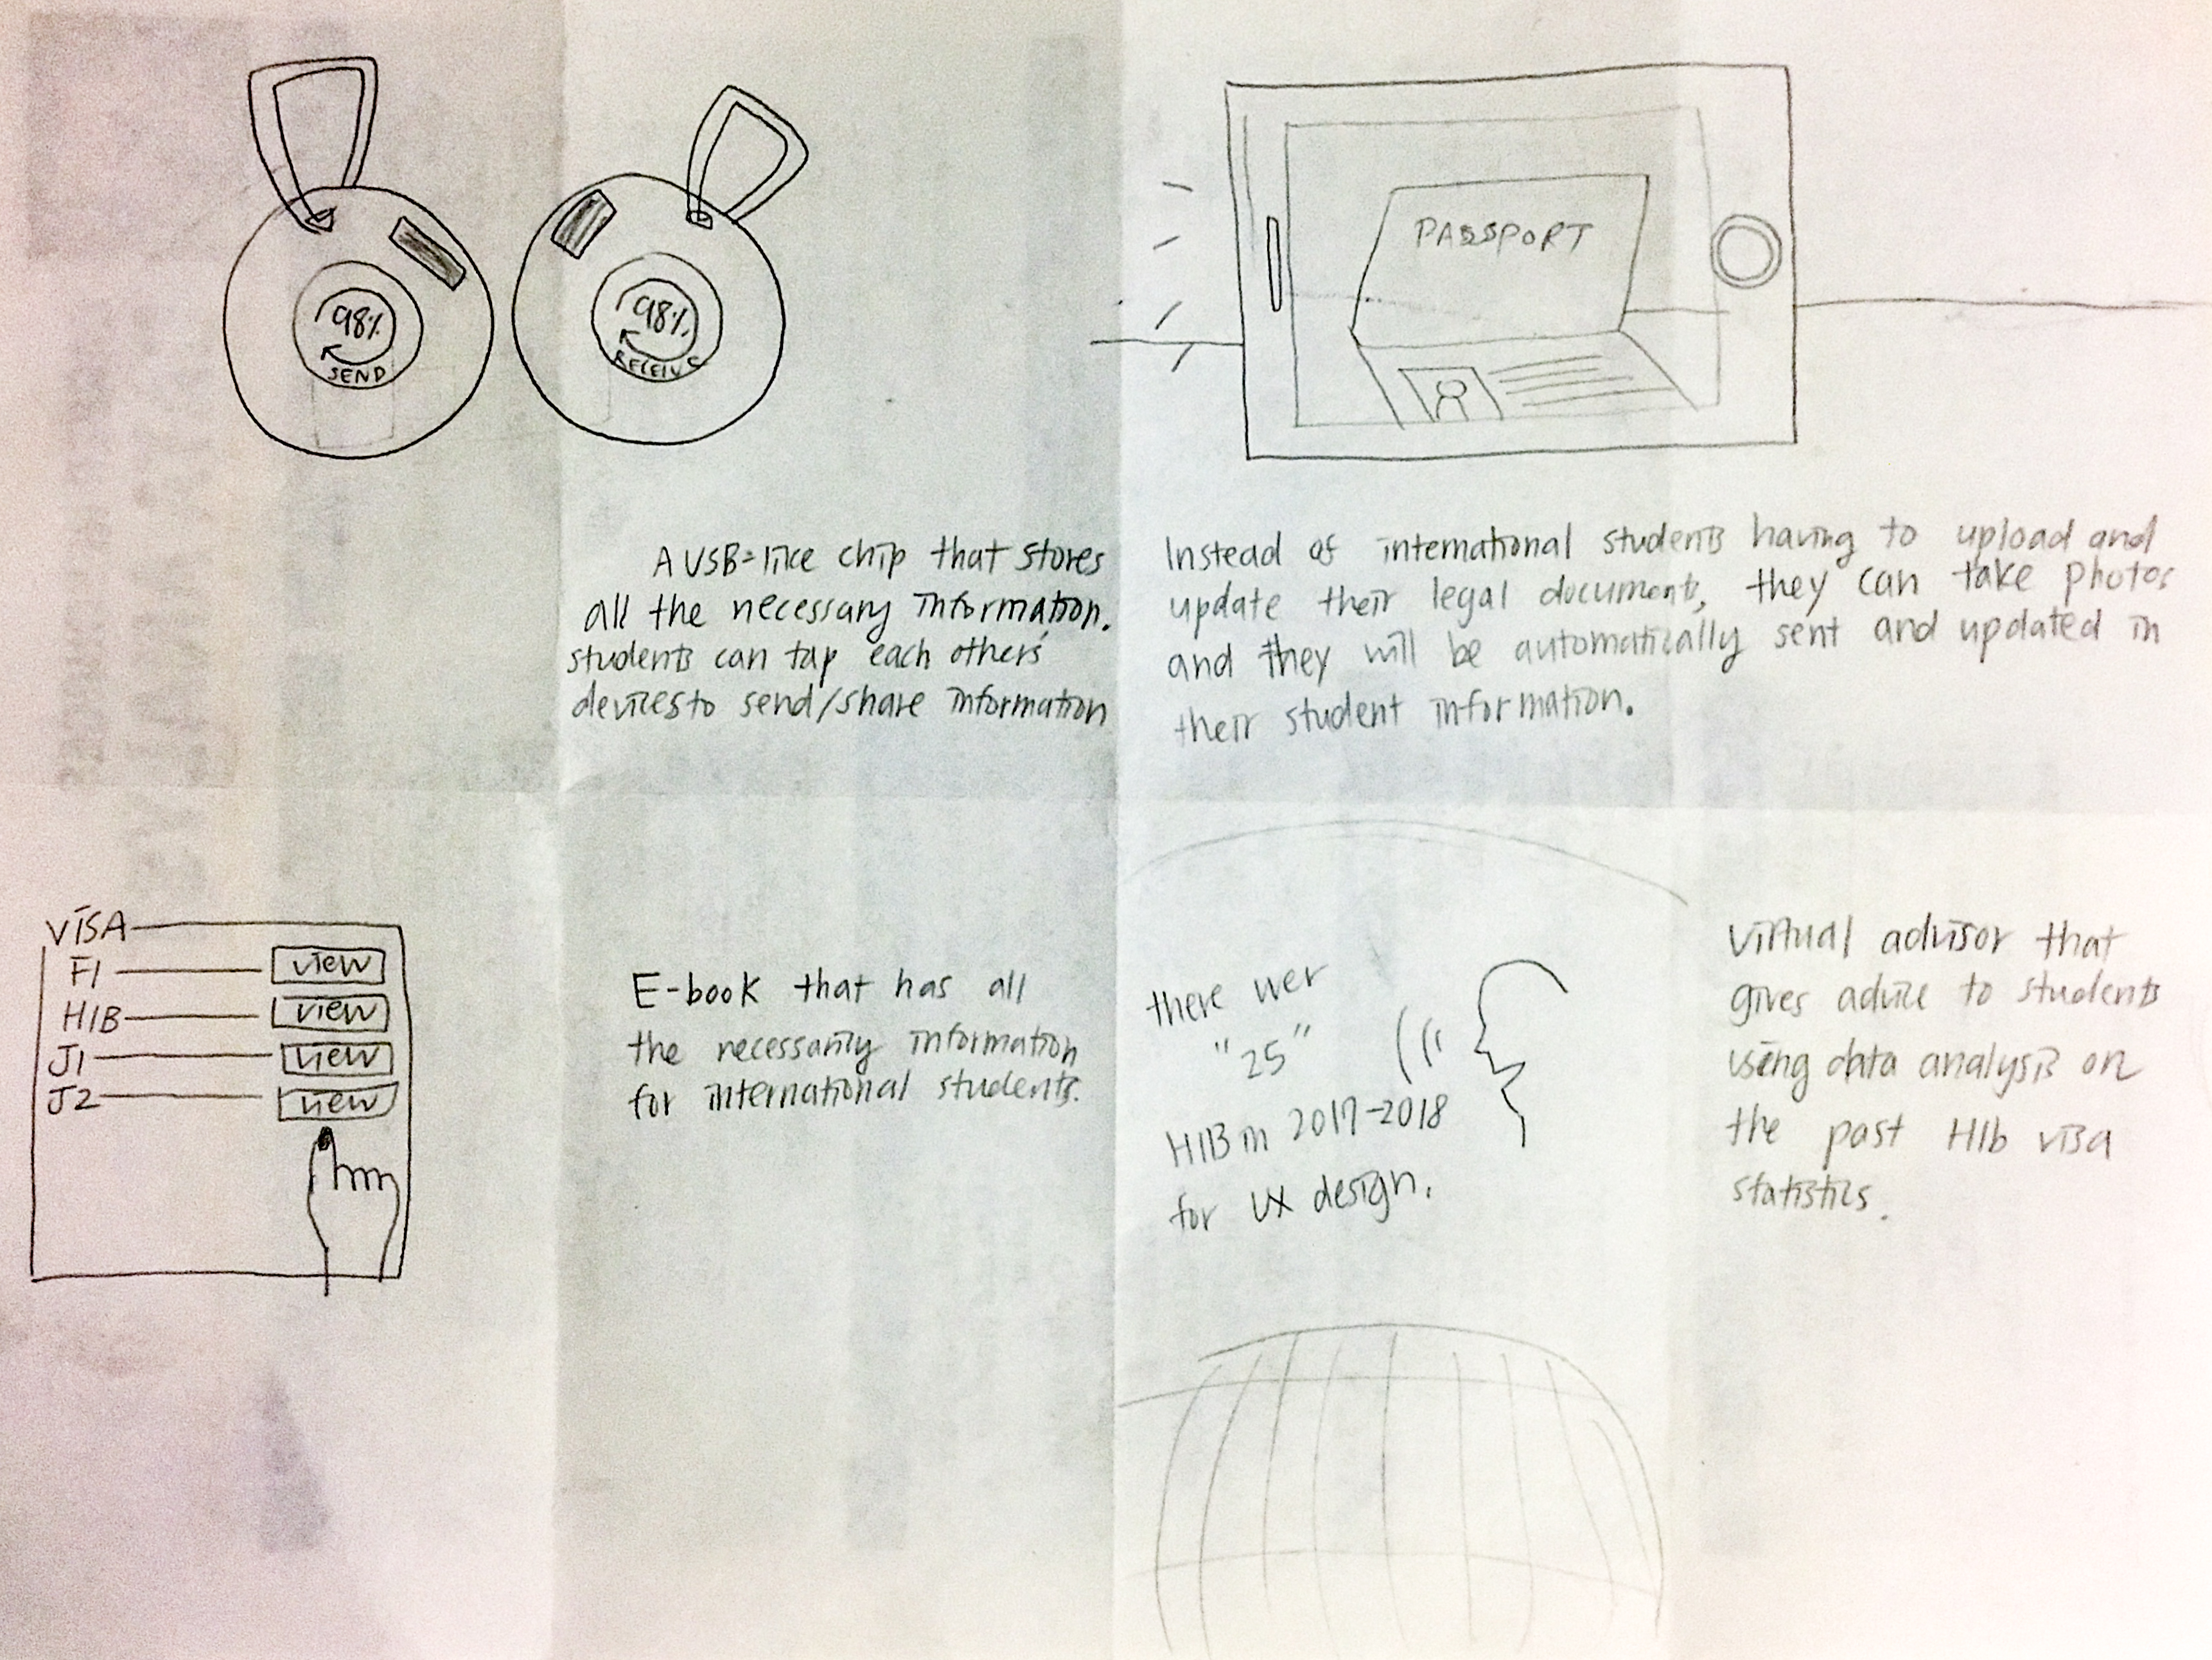 98%
SEND
98%
RECEIVE
A USB-like chip that stores
all the necessary information.
students can tap each others'
devices to send/share information
PASSPORT
Instead of international students having to upload and
update their legal documents, they can take photos
and they will be automatically sent and updated in
their student information.
VISA
F1 view
H1B view
J1 view
J2 view
E-book that has all
the necessarity information
for international students.
there wer
"25"
H1B in 2017-2018
for UX design.
Virtual advisor that
gives advice to students
using data analysis on
the past H1b visa
statistics.